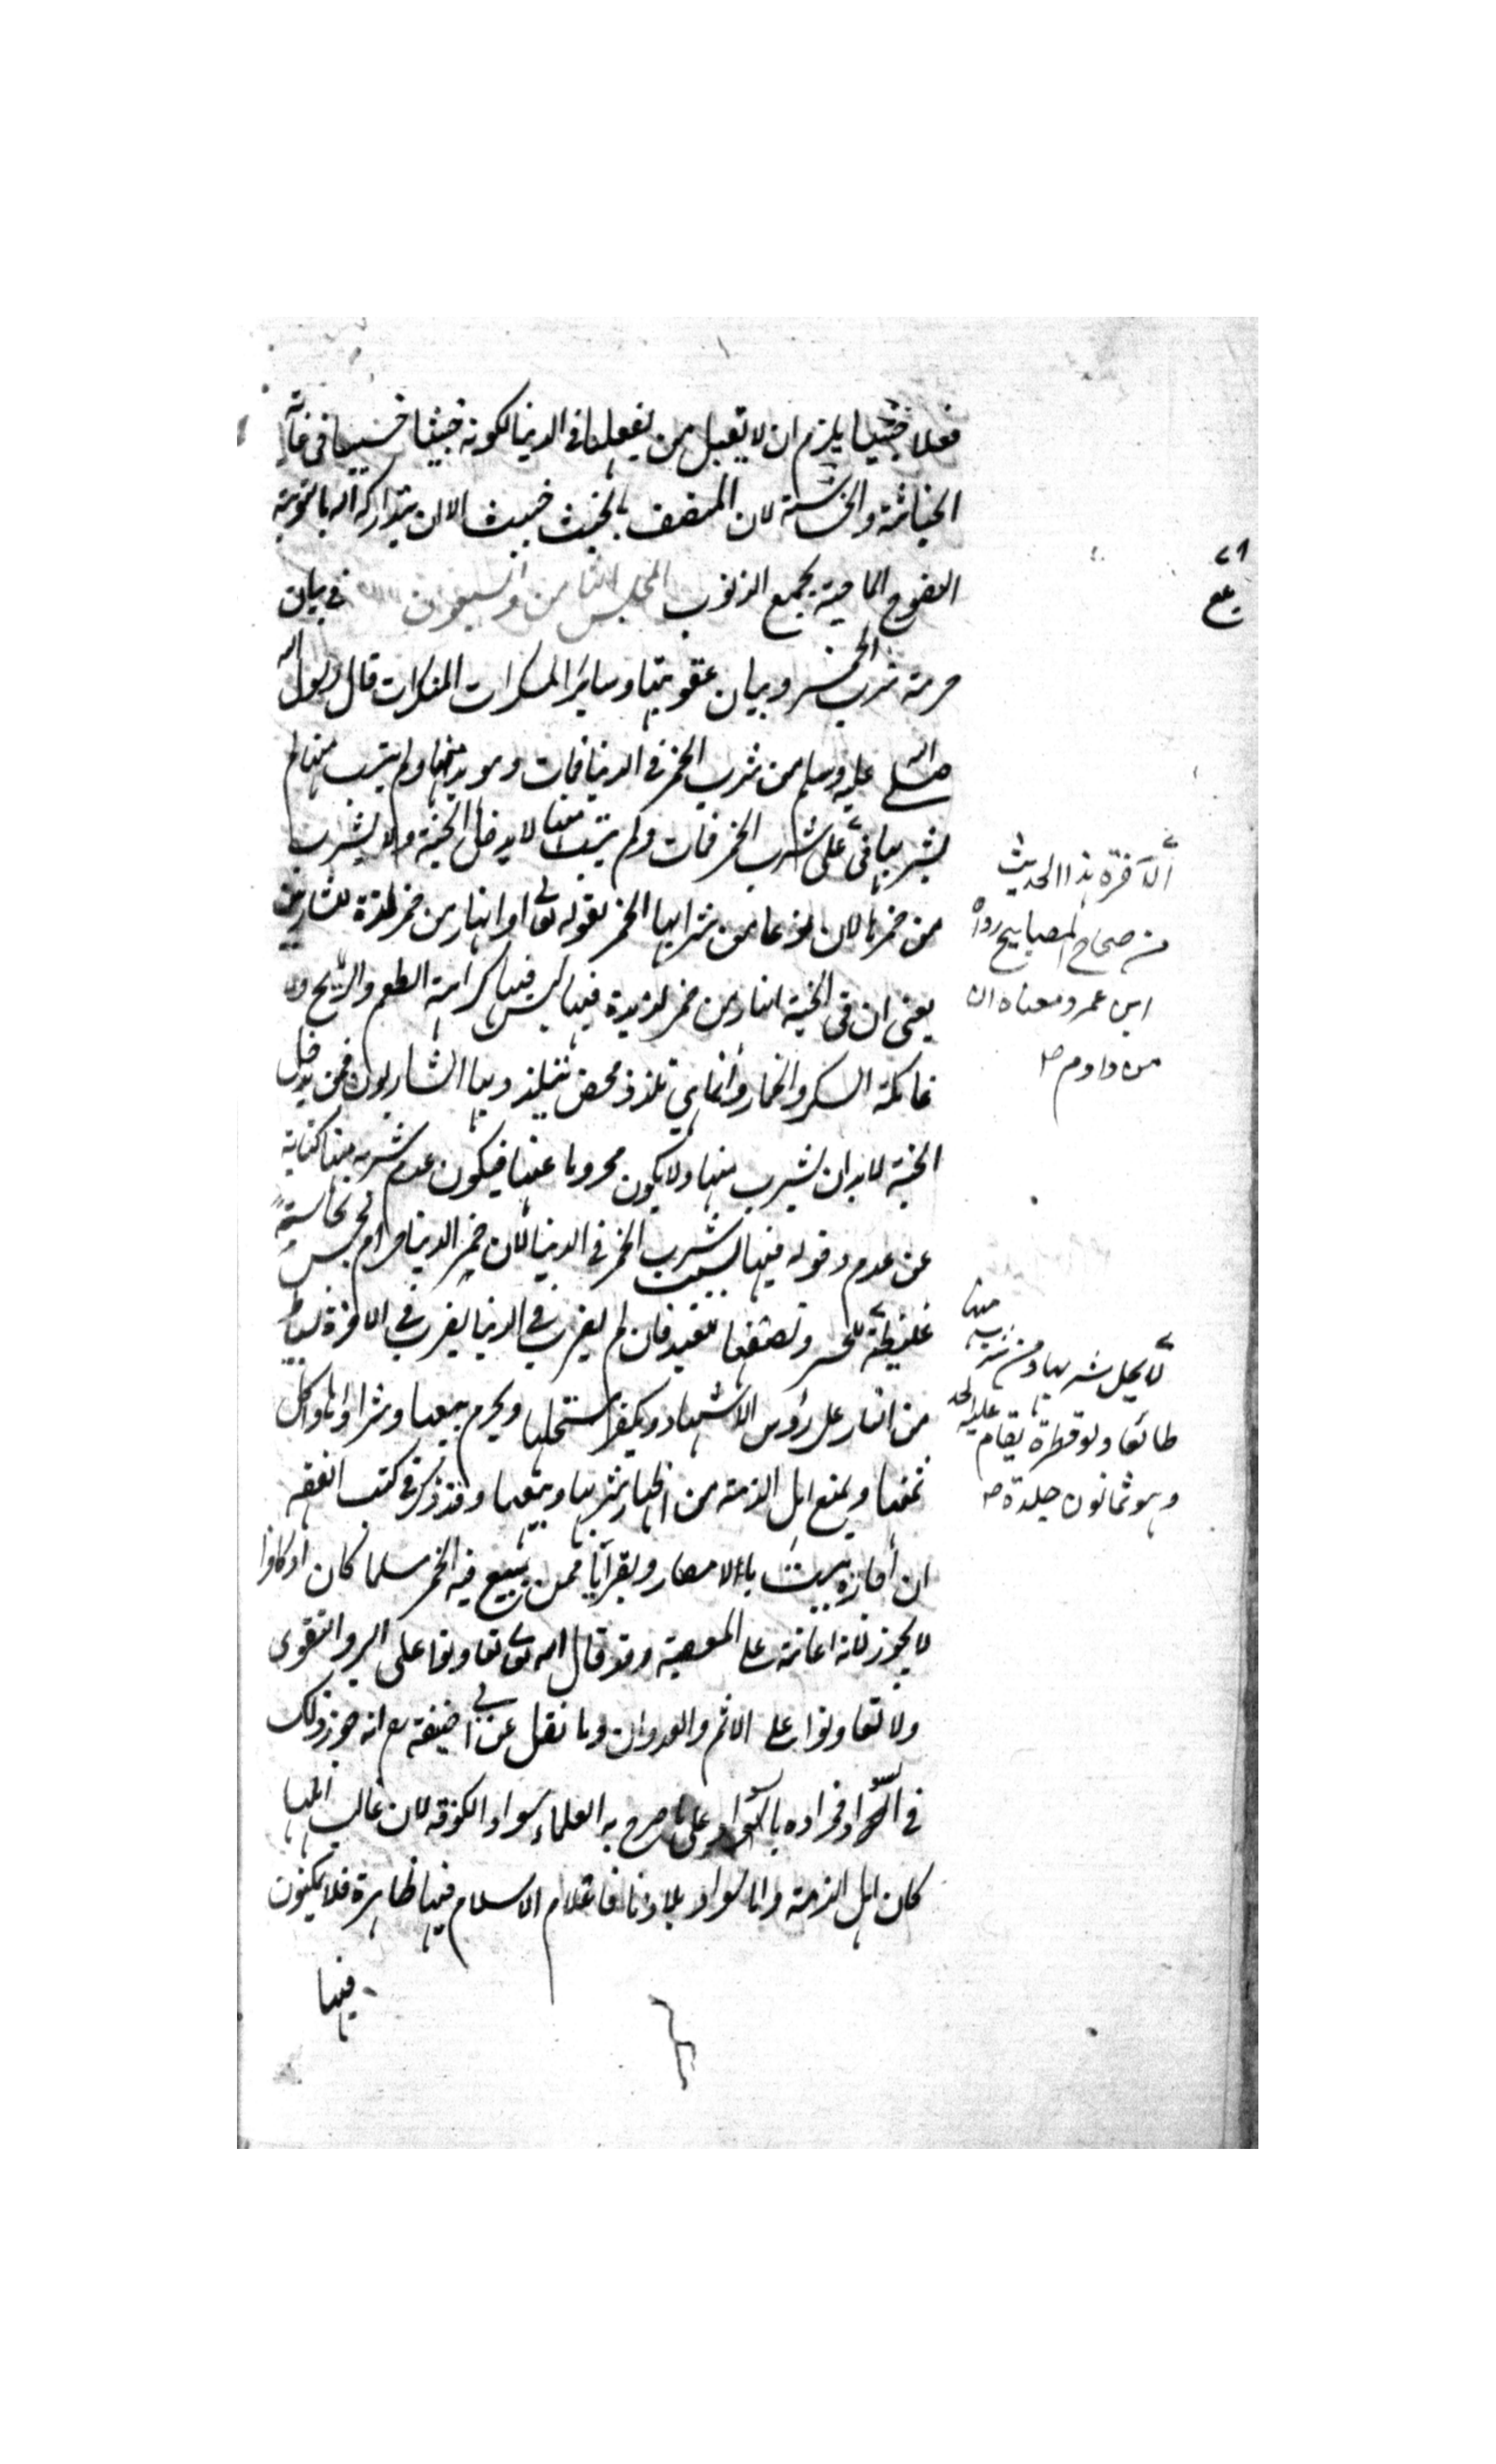 فعلا خبيثا يلزم ان لا يقبل ممن يفعلها في الدنيا لكونه خبيثا خسيسا في غاية
الخباثة والخساسة لان المتصف بالخبث خبيث الا ان يتداركه الله بالتوبة
النصوح الماحية بجميع الذنوب المجلس الثامن والسبعون في بيان
حرمة شرب الخمر وبيان عقوبتها وسائر المسكرات المنكرات قال رسول الله
صلى الله عليه وسلم من شرب الخمر في الدنيا فمات وهو يدمنها ولم يتب منها لم
يشربها في على شرب الخمر فمات ولم يتب منها لا يدخل الجنة ولا يشرب
من خمرها لان نوعا من شرابها الخمر لقوله تعالى وانهار من خمر لذة للشاربين
يعني ان في الجنة انهار من خمر لذيذة فيها ليس فيها كراهة الطعم والريح ولا
غائلة السكر والخمار وانما هي تلذذ محض يتلذذ بها الشاربون فمن يدخل
الجنة لا بد ان يشرب منها ولا يكون محروما عنها فيكون عدم شربه منها كناية
عن عدم دخوله فيها بسبب شرب الخمر في الدنيا لان خمر الدنيا حرام نجس نجاسته
غليظة للحر ونصفها للعبد فان لم يضرب في الدنيا يضرب في الاخرة بسياط
من النار على رؤس الاشهاد ويكفر مستحلها ويحرم بيعها وشراؤها واكل
ثمنها ويمنع اهل الذمة من اظهار شربها وبيعها وقد ذكر في كتب الفقه
ان اجازة بيت بالامصار وبقرانا ممن يبيع فيه الخمر مسلما كان او كافرا
لا يجوز لانه اعانة على المعصية وقد قال الله تعالى تعاونوا على البر والتقوى
ولا تعاونوا على الاثم والعدوان وما نقل عن ابي حنيفة رح انه جوز ذلك
في السواد فمراده بالسواد على ما صرح به العلماء سواد الكوفة لان غالب اهلها
كان اهل الذمة واما سواد بلادنا فاعلام الاسلام فيها ظاهرة فلا يمكنون
فيها
الآخرة هذا الحديث
من صحاح المصابيح رواه
ابن عمر ومعناه ان
من داوم صح
لا يحل شربها ومن شرب منها
طائعا ولو قطرة يقام عليه الحد
وهو ثمانون جلدة صح